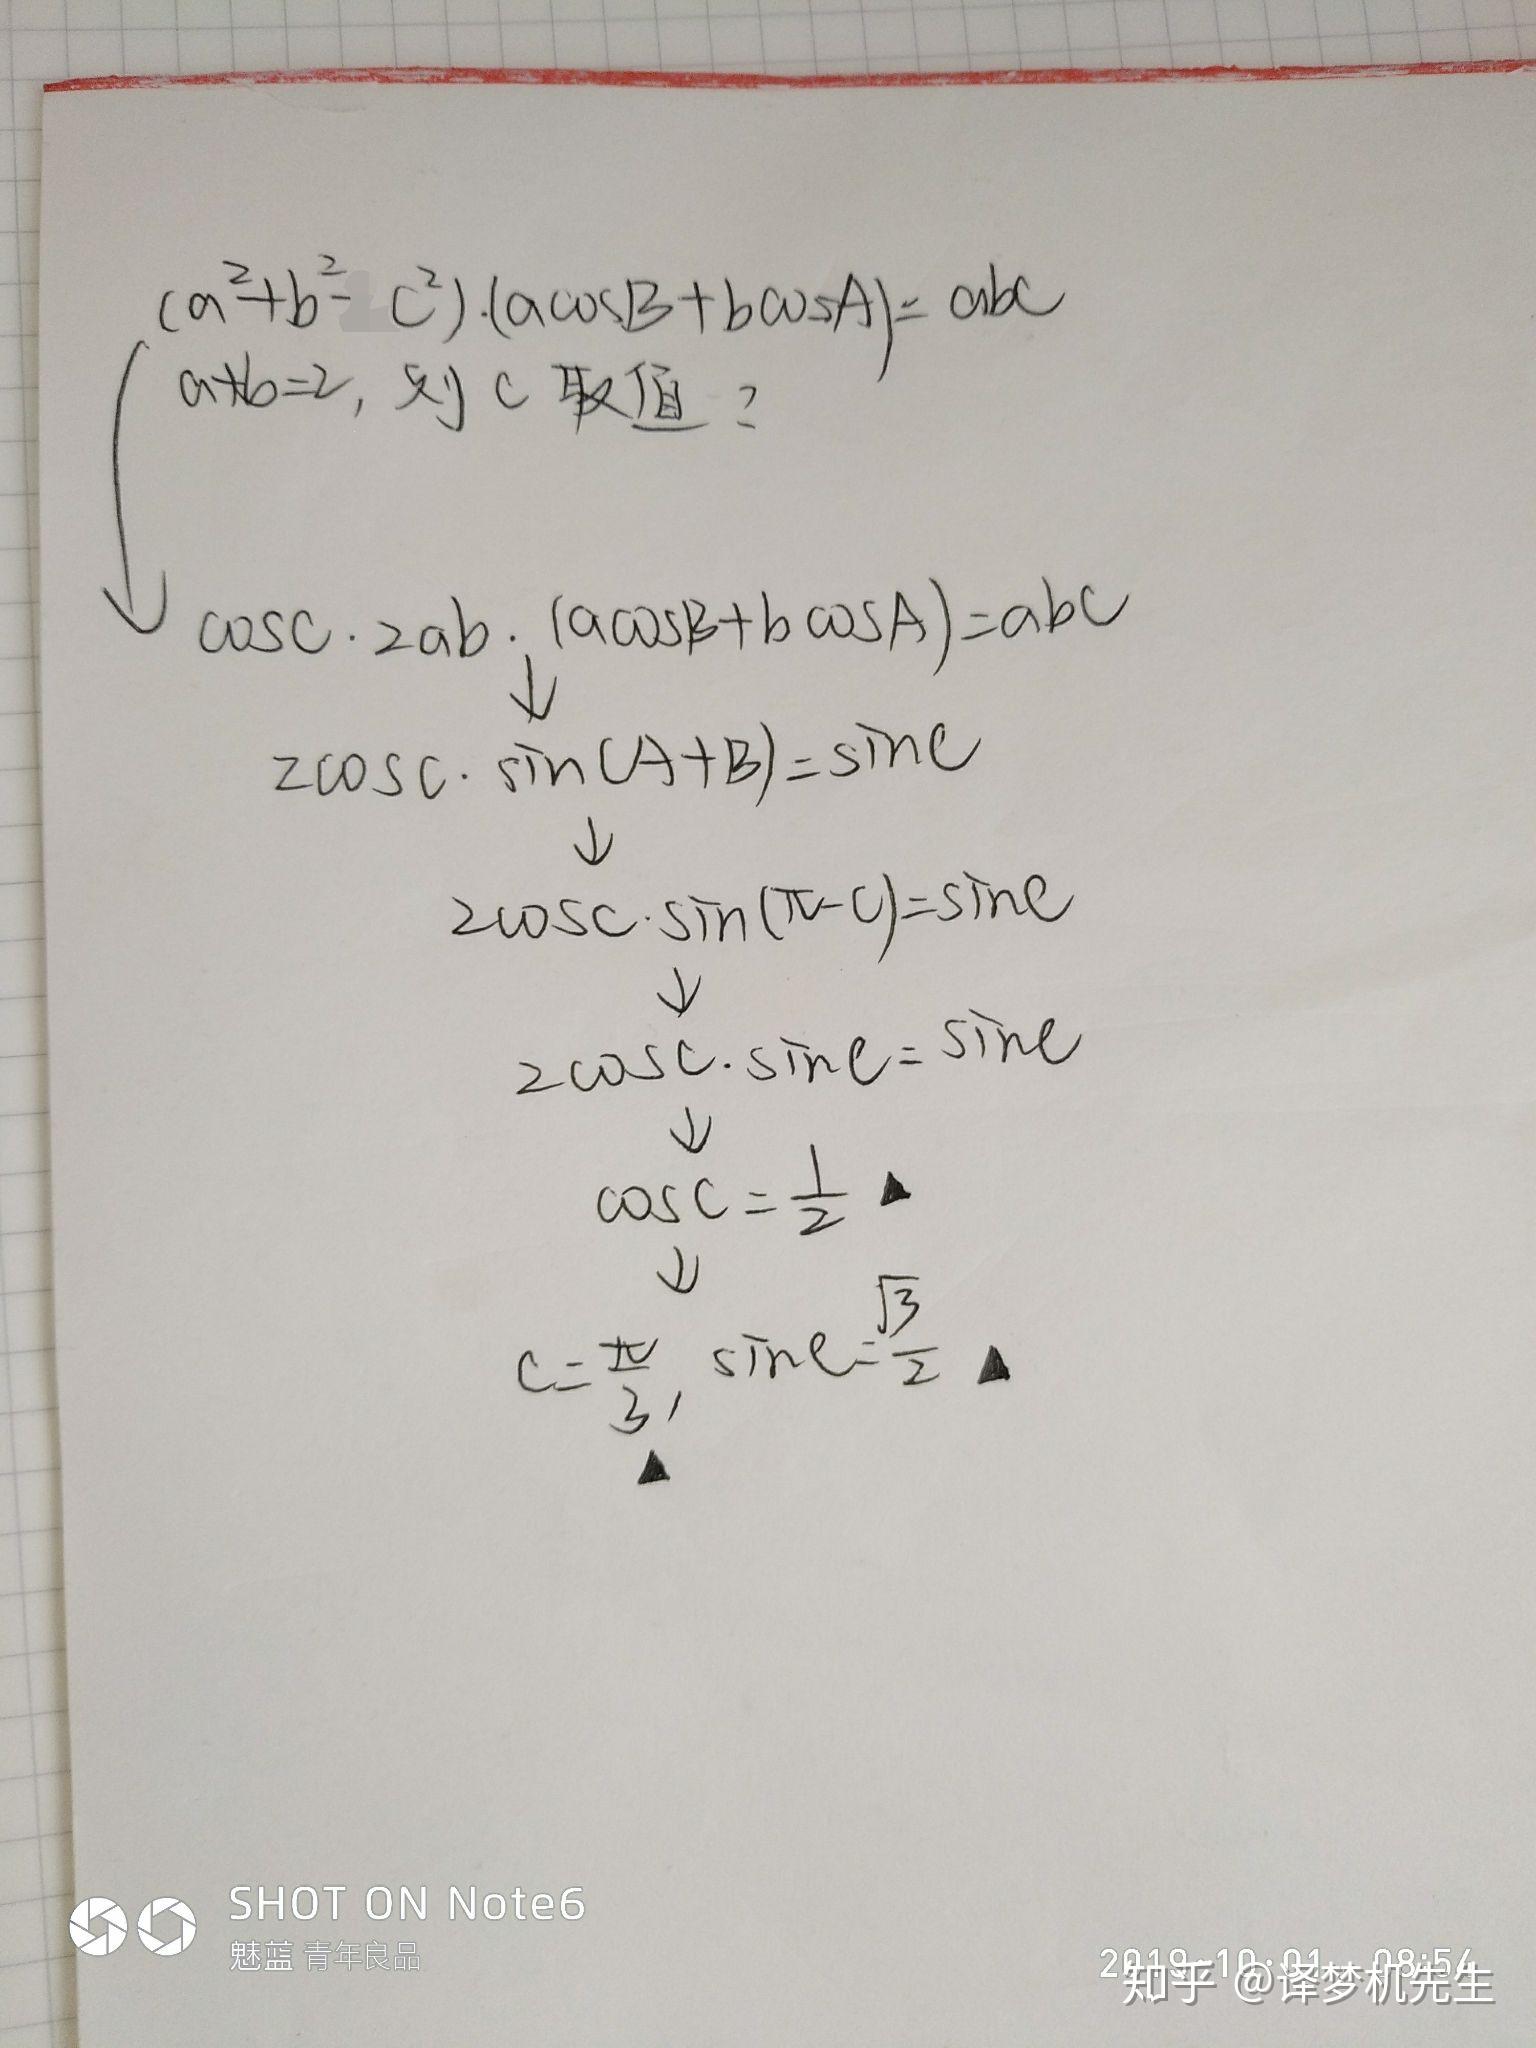 (a²+b²-c²)·(acosB+bcosA)=abc
a+b=2, 则 c 取值?
cosC·2ab·(acosB+bcosA)=abc
↓
2cosC·sin(A+B)=sinC
↓
2cosC·sin(π-C)=sinC
↓
2cosC·sinC=sinC
↓
cosC=1/2 ▲
↓
C=π/3, sinC=√3/2 ▲
▲
SHOT ON Note6
魅蓝 青年良品
2019-10-01 08:54
知乎 @译梦机先生